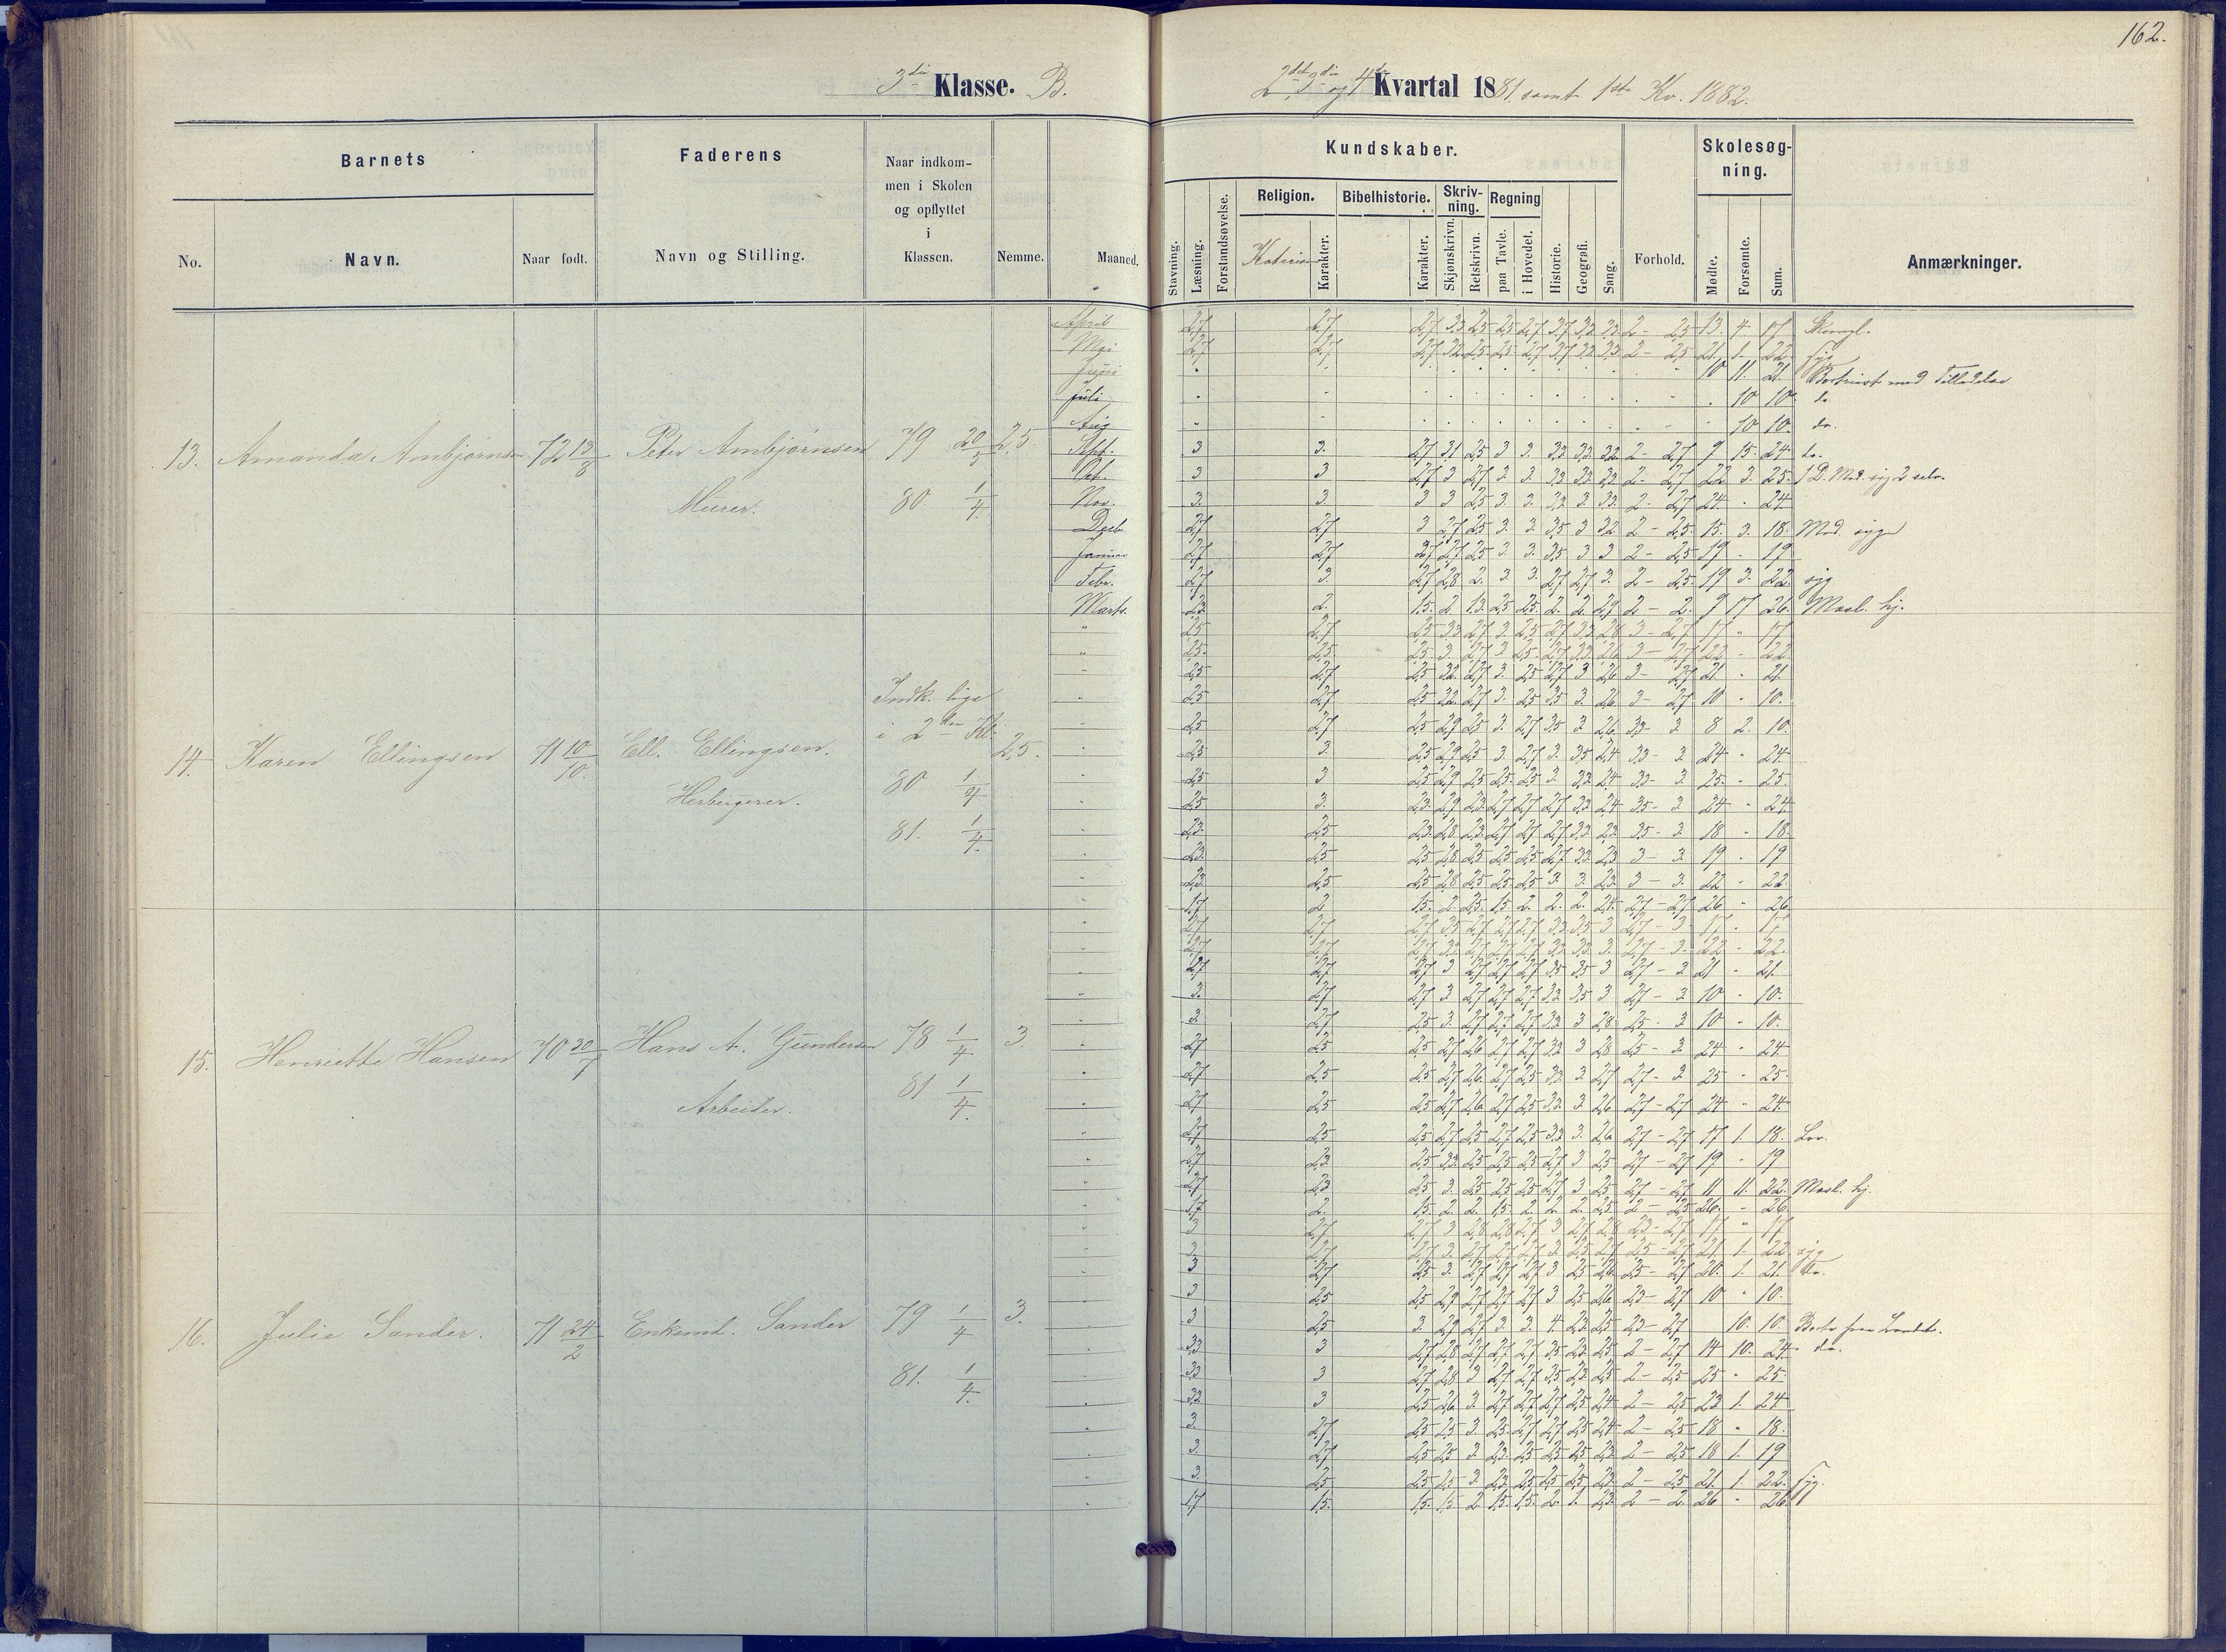 162.
3die Klasse. B.
2det, 3die og 4de Kvartal 1881 samt 1ste Kv. 1882.
Barnets
Faderens
Naar indkom-
men i Skolen
og opflyttet
i
Klassen.
No.
Navn.
Naar født.
Navn og Stilling.
Nemme.
Maaned.
Kundskaber.
Skolesøg-
ning.
Stavning.
Læsning.
Forstandsøvelse.
Religion.
Karakter.
Bibelhistorie.
Karakter.
Skriv-
ning.
Skjønskrivn.
Retskrivn.
Regning
paa Tavle.
i Hovedet.
Historie.
Geografi.
Sang.
Forhold.
Mødte.
Forsømte.
Sum.
Anmærkninger.
13. Amanda Ambjørnsen 72 13/8 Peter Ambjørnsen 79 20/5 2,5.
Murer. 80 1/4
April 2,7 2,7 2,7 3,3 2,5 2,5 2,7 3,7 3,3 3,3 2 - 2,5 13. 4 17
Mai 2,7 2,7 2,7 3,2 2,5 2,5 2,7 3,7 3,3 3,3 2 - 2,5 21 1 22 syg
Juni 10 11. 21. Bortreist med Tilladelse
Juli 10 10. do
Aug 10 10. do.
Sept. 3 3. 2,7 3,1 2,5 3 3. 3,3 3,3 3,2 2 - 2,7 9 15. 24. do.
Oct. 3 3 2,7 3 2,7 3 3. 3,3 3,3 3,2 2 - 2,7 22 3. 25. 1 D. Mod. syg 2 selv.
Nov. 3. 3. 3 3 2,5 3. 3. 3,3 3 3,3 2 - 2,7 24. - 24.
Decb. 2,7 2,7 3 2,7 2,5 3. 3. 3,5 3 3,2 2 - 2,5 15. 3. 18. Mod. syg
Januar 2,7 2,7 2,7 2,7 2,5 3. 3. 3,5 3 3 2 - 2,5 19 - 19
Febr. 2,7 3. 2,7 2,8 2. 3. 3. 2,7 2,7 3. 2 - 2,5 19 3. 22 syg
Marts. 2,3 2. 1,5. 2 1,3. 2,5 2,5. 2. 2. 2,9 2 - 2. 9 17 26.
14. Karen Ellingsen 71 10/10. Ell. Ellingsen. Indk. lige
i 2den Kl. 2,5.
Herbergerer. 80 1/4
81. 1/4.
2,5 2,7 2,5 3,3 2,7 3. 2,5 2,7 3,3 2,8 3 - 2,7 17 - 17
2,5 2,5 2,5 3. 2,7 3 2,5 2,7 3,3 2,6 3 - 2,7 22 - 22
2,5 2,7 2,5 3,2 2,7 3. 2,5 2,7 3 2,6 3 - 2,7 21. - 21.
2,5 2,7 2,5 3,2 2,7 3. 2,5 3,5 3. 2,6 3 - 2,7 10 - 10.
2,5 2,7 2,5 2,9 2,5 3. 2,7 3,5 3. 2,6 3,3 - 3. 8 2. 10.
2,5 3. 2,5 2,9 2,5 3 2,7 3. 3,5 2,4 3,3 - 3. 24 - 24.
2,5 3 2,5 2,9 2,5 2,5. 2,5 3. 3,3 2,4 3,3 - 3. 25. - 25.
2,5 3. 2,3. 2,9 2,3 2,7 2,7 2,7 3,3 2,4 3,5 - 3. 24 - 24.
2,3. 2,5 2,3. 2,8 2,3. 2,7 2,7 2,7 3,3. 2,3. 3,5 - 3. 18 - 18.
2,3. 2,5 2,5 2,8 2,5 2,5 2,5 2,7 3,3. 2,3 3 - 3. 19 - 19
2,3. 2,5 2,5 2,8 2,5 2,5. 2,5 3. 3. 2,3. 3 - 3. 22 - 22
1,7 2 1,5. 2. 1,5. 1,5 2. 2. 2. 2,4. 2,7 - 2,7 26 - 26
15. Henriette Hansen 70 30/7 Hans A. Gundersen 78 1/4 3.
Arbeider. 81 1/4.
2,7 2,7 2,7 3,5 2,7 2,7 2,7 3,3 3,5 3 2,7 - 3 17 - 17
2,7 2,7 2,7 3,2 2,7 2,7 2,7 3,3 3,3 3. 2,7 - 3. 22 - 22.
2,7 2,7 2,7 3 2,7 2,7 2,7 3,5 3,5 3 2,7 - 3 21 - 21.
3. 2,7 2,7 3 2,7 2,7 2,7 3,3 3,5 3 2,7 - 3. 10 - 10.
3. 2,7 2,5 3. 2,7 2,7 2,7 3,3 3 2,8 2,5 - 3. 10 - 10.
2,7 2,5 2,5 2,7 2,6 2,7 2,7 3,3 3 2,8 2,5 - 3. 24 - 24.
2,7 2,5 2,5 2,7 2,6 2,7 2,5 3,3 3. 2,7 2,7 - 3. 25 - 25.
2,7 2,5 2,5 2,7 2,6 2,7 2,5 3,3. 3 2,6 2,7 - 2,7 24 - 24.
2,7 2,5 2,5 2,7 2,5 2,7 2,5 3,3 3. 2,6 2,7 - 2,7 17 1. 18. Lov.
2,7 2,3. 2,5 3,3 2,5 2,5 2,5 2,7 3 2,5 2,7 - 2,7 19 - 19
2,7 2,3 2,5 3. 2,5 2,5 2,5 2,7 3 2,5 2,7 - 2,7 11 11. 22.
1,7 2. 1,5. 2. 2. 1,5 2. 2. 2. 2,5. 2 - 2,5 26. - 26
16. Julie Sander. 71 24/2 Enkemd. Sander 79 1/4 3.
81. 1/4.
3 2,7 2,7 3 2,8 2,8 2,7 3 2,7 2,8 2,3 - 2,7 17 - 17
3. 2,7 2,7 3. 2,7 2,7 2,7 3. 2,5 2,7 2,5 - 2,7 21 1. 22 syg
3 2,7 2,5 3. 2,7 2,7 2,7 3 2,5 2,6 2,5 - 2,7 20. 1. 21. do.
3 2,5 2,5 2,9 2,7 2,7 2,7 3 2,5 2,6 2,3 - 2,7 10 - 10.
3 2,5 3. 2,9 2,7 3. 3. 4. 2,3 2,5 2,3 - 2,7 10. 10.
3,3 3 2,7 2,8 2,7 2,7 2,7 3,5 2,3 2,5 2 - 2,7 14 10. 24. do.
3,3 3 2,7 2,8 3 2,7 2,7 3,5 2,3 2,5 2 - 2,5 25 - 25.
3,2 3 2,5 2,6 3. 2,7 2,7 2,7 2,5 2,4 2 - 2,5 23 1. 24
3. 2,7 2,5 2,5 3. 2,5. 2,7 2,7 2,5 2,4 2 - 2,5 18 - 18.
3. 2,7 2,5 2,5 3. 2,3. 2,5 2,5 2,5 2,3. 2 - 2,5 18 1. 19
3. 2,5 2,5 2,5 3. 2,3. 2,5 2,5 2,5 2,3. 2 - 2,5 21. 1. 22. syg.
1,7 1,5. 1,5. 1,5 2 1,5. 1,5. 2. 1. 2,3. 2 - 2. 26 - 26.